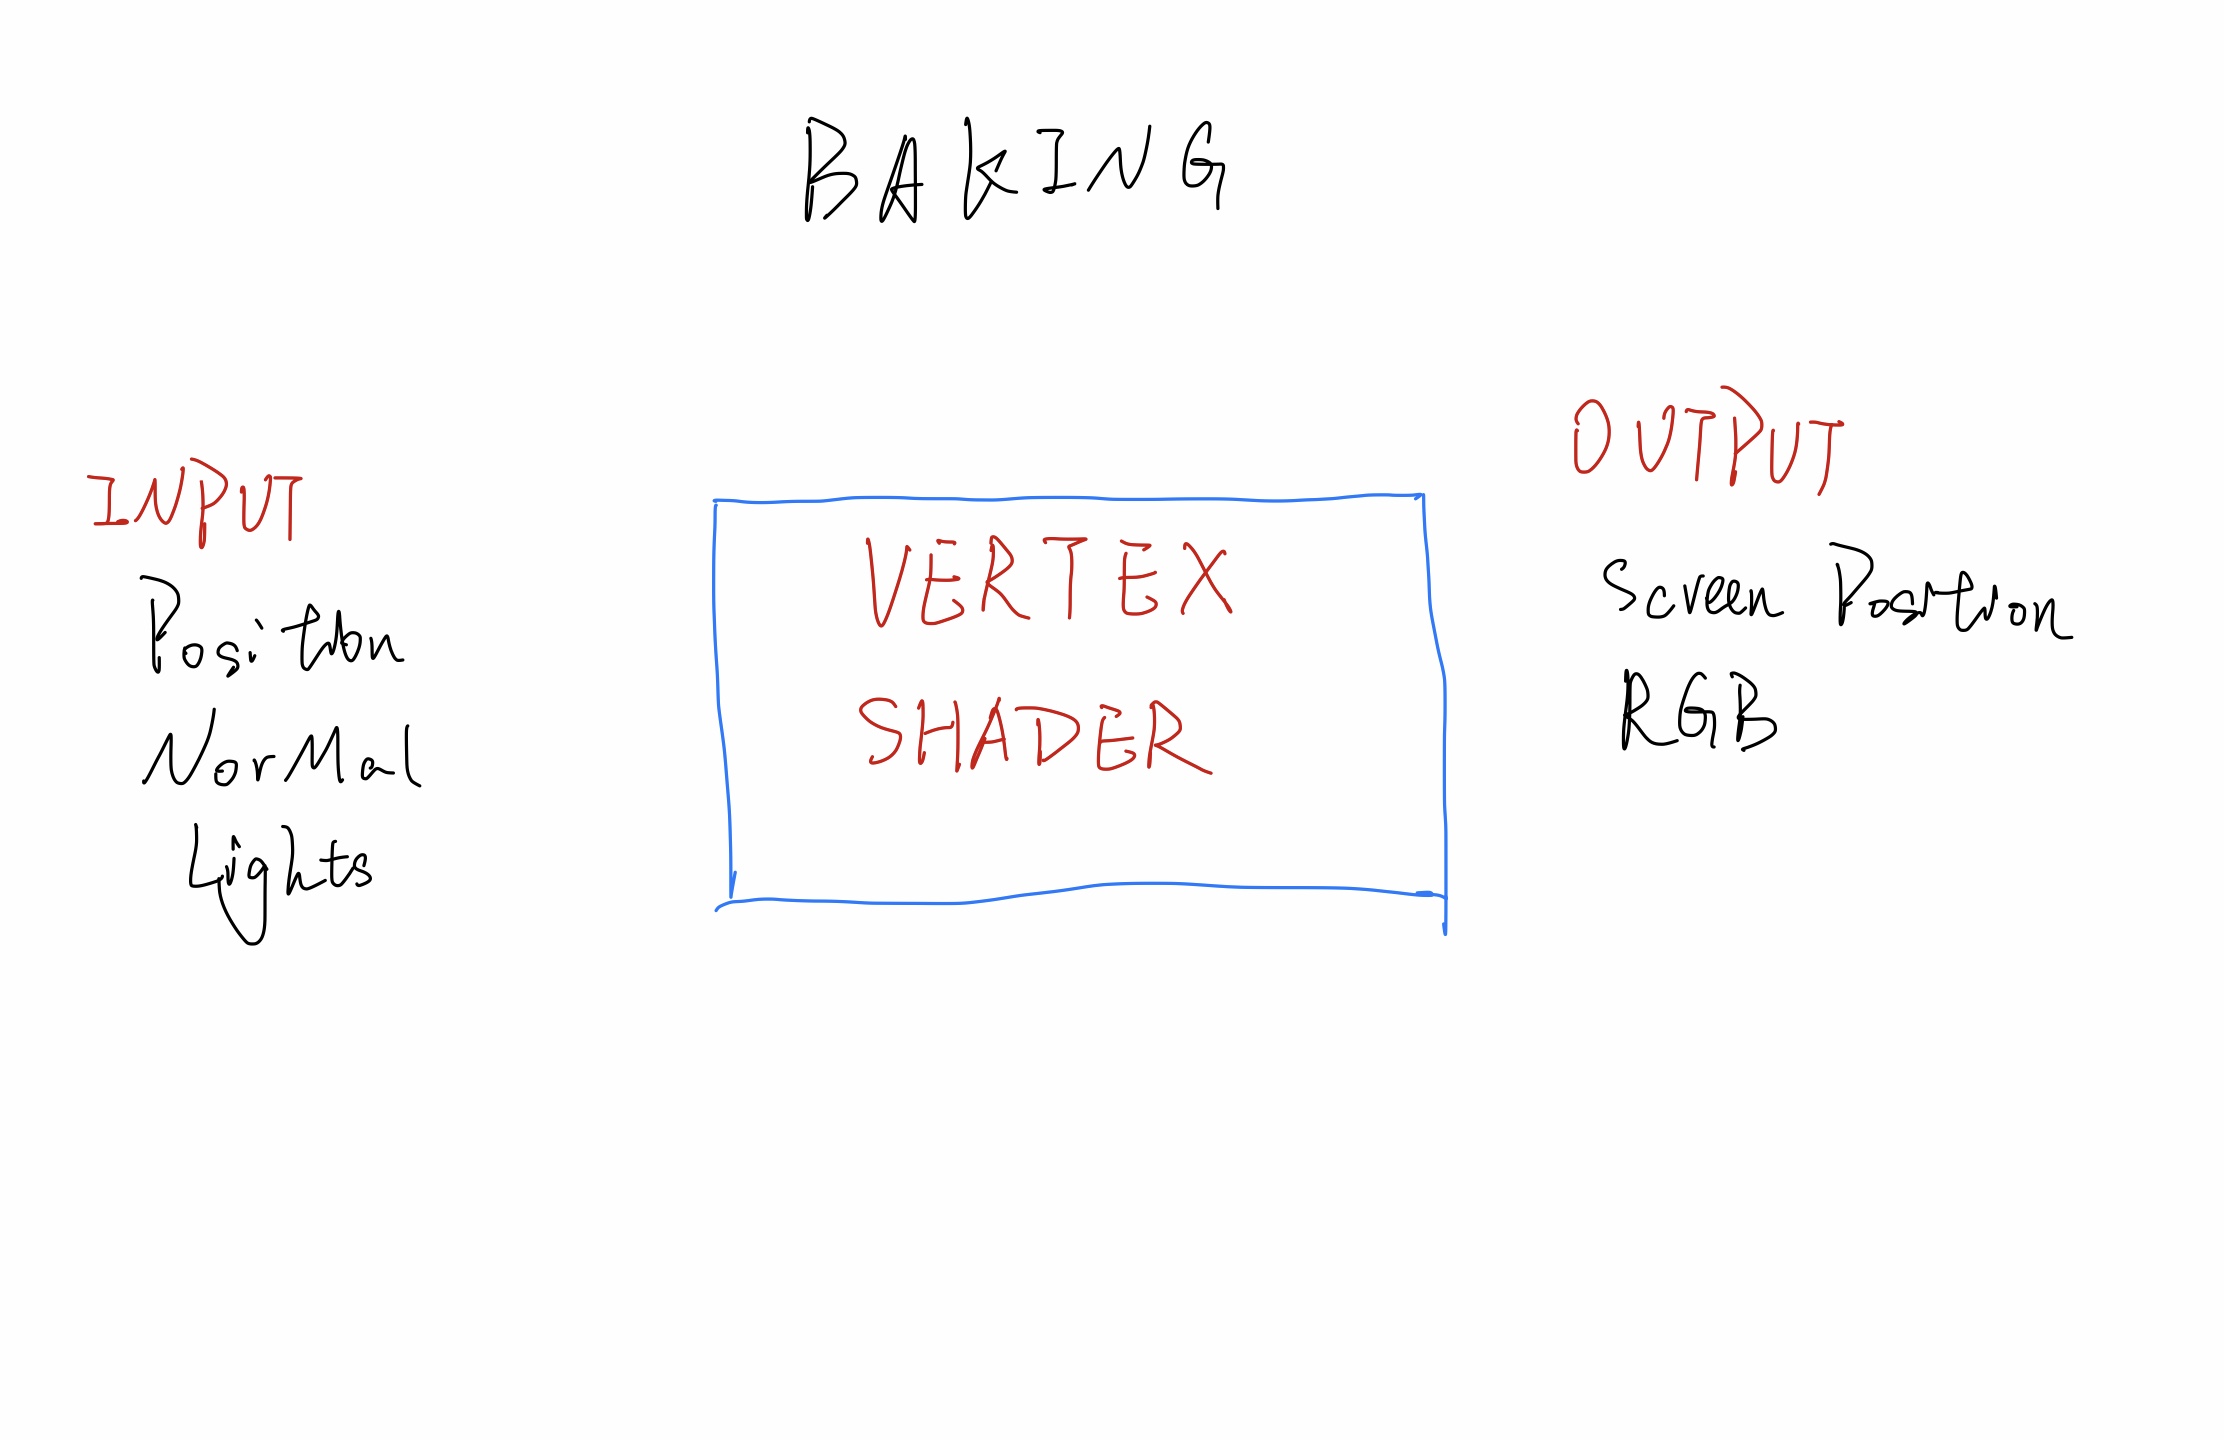 BAKING
INPUT
Position
Normal
Lights
VERTEX
SHADER
OUTPUT
Screen Position
RGB